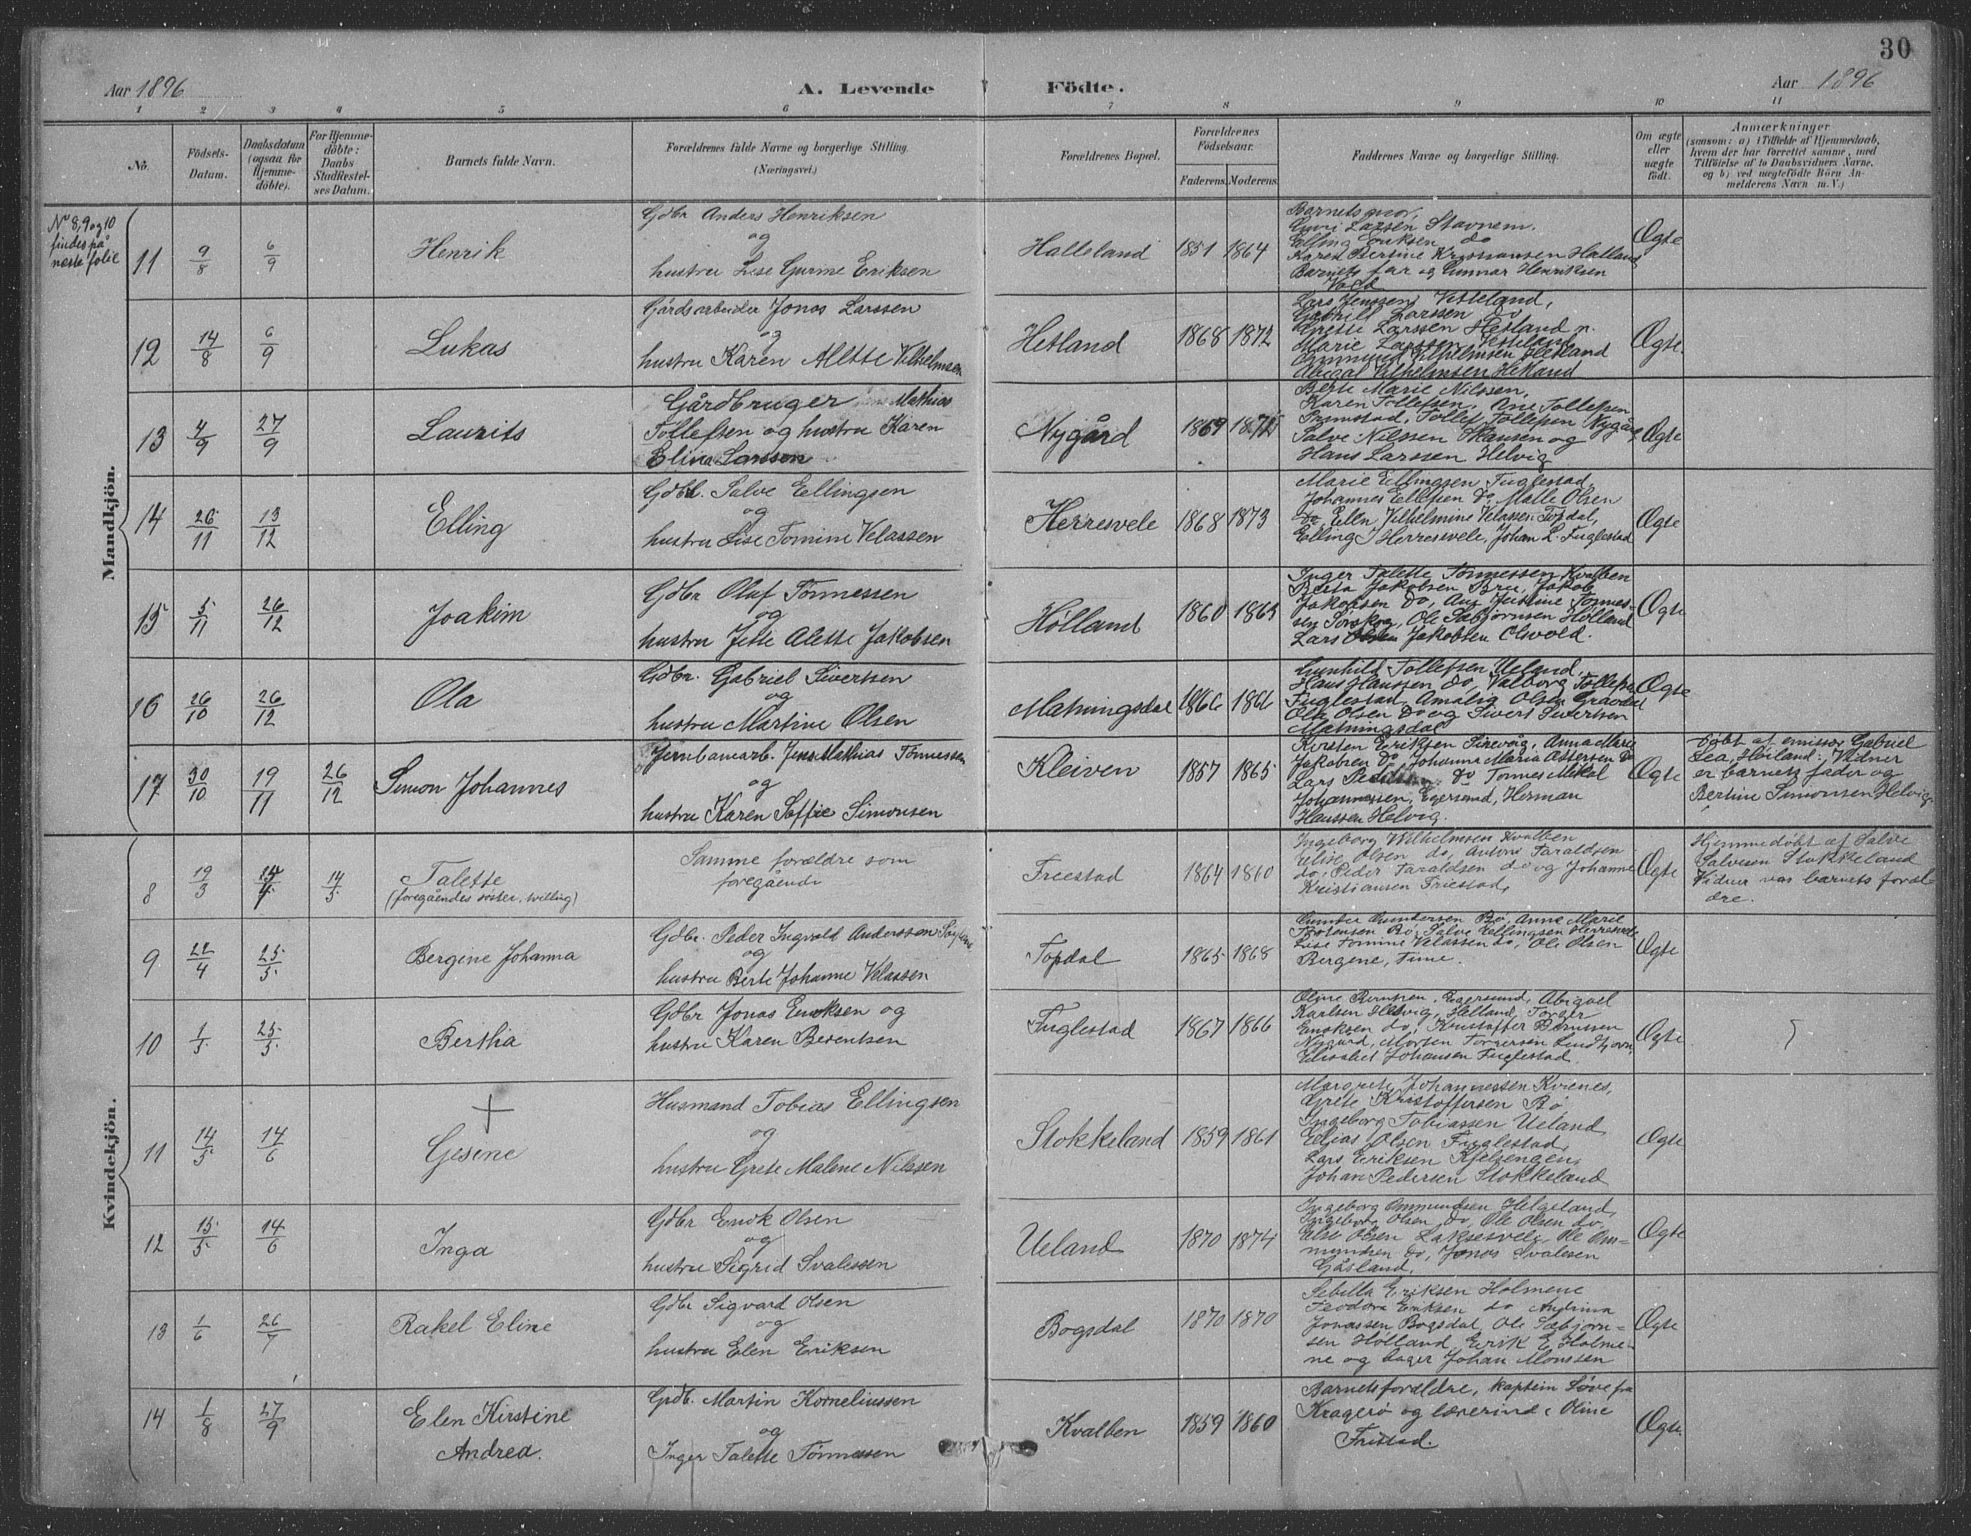 30
Aar 1896
A. Levende Födte.
Aar 1896
1 2 3 4 5 6 7 8 9 10 11
No.
Födsels-Datum.
Daabsdatum (ogsaa for Hjemmedöbte).
For Hjemmedöbte: Daabs Stadfæstelses Datum.
Barnets fulde Navn.
Forældrenes fulde Navne og borgerlige Stilling. (Næringsvei.)
Forældrenes Bopæl.
Forældrenes Födselsaar.
Faderens. Moderens.
Faddernes Navne og borgerlige Stilling.
Om ægte eller uægte födt.
Anmærkninger
(saasom: a) i Tilfælde af Hjemmedaab,
hvem der har forrettet samme, med
Tilföielse af to Daabsvidners Navne,
og b) ved uægtefödte Börn Anmelderens Navn m. V.)
No 8, 9 og 10
findes på
neste folie
Mandkjön.
11 9/8 6/9 Henrik
Gdbr Anders Henriksen
og
hustru Lise Gurine Eriksen
Halleland 1851 1864
Barnets mor,
Guri Larsen Stavnem.
Elling Eriksen do
Karen Bertine Kristiansen Halland
Barnets far og Gunnar Henriksen
Ægte
12 14/8 6/9 Lukas
Gårdsarbeider Jonas Larssen
og
hustru Karen Alette Vilhelmsen
Hetland 1868 1872
Lars Jenssen Vetteland,
Gabriel Larssen do
Grette Larssen Hetland
Marie Larssen Vetteland
Vilhelmsen Hetland
Abigal Vilhelmsen Hetland
Ægte.
13 4/9 27/9 Laurits
Gårdbruger Mathias
Tollefsen og hustru Karen
Eline Larssen
Nygård 1869 1872
Berte Marie Nilssen,
Karen Tollefsen, Ane Tollefsen
Tollef Tollefsen Nygård
Salve Nilssen Skansen og
Hans Larssen Helvig
Ægte
14 26/11 13/12 Elling
Gdbr. Salve Ellingsen
og
hustru Lise Tomine Velassen
Herresvele 1868 1873
Marie Ellingsen Fuglestad,
Johannes Ellefsen do, Malle Olsen
do, Elen Vilhelmine Velassen Topdal,
Elling J Herresvele, Johan L. Fuglestad
Ægte
15 5/11 26/12 Joakim
Gdbr Oluf Tönnessen
og
hustru Jette Alette Jakobsen
Hölland 1860 1865
Inger Talette Tönnessen Kvalben
Berta Jakobsen Bru, Jakob
Jakobsen do, Ane Justine Tönnes-
sen Torskog, Ole Sæbjörnsen Hölland
Lars Jakobsen Osvold.
Ægte
16 26/10 26/12 Ola
Gdbr. Gabriel Sivertsen
og
hustru Martine Olsen
Matningsdal 1866 1866
Gunhild Tollefsen Ueland,
Hans Hanssen do, Valborg Tollefsen
Fuglestad, Amalia Olsen Gravdal
Ole Olsen do og Sivert Sivertsen
Matningsdal
Ægte
17 30/10 19/11 26/12 Simon Johannes
Jernbanearb. Jens Mathias Tönnessen
og
hustru Karen Soffie Simonsen
Kleiven 1857 1865
Kirsten Eriksen Sirevåg, Anna Marie
Jakobsen do, Johanne Maria Assersen do
Lars do Tönnes Mikal
Johannessen, Egersund, Herman
Hanssen Helvig.
Ægte
döbt af emissær Gabriel
Lea, Höiland. Vidner
er barnets fader og
Bertine Simonsen Helvig.
Kvindekjön.
8 19/3 14/5 Talette
(foregåendes söster, tvilling)
Samme forældre som
foregående
Friestad 1864 1860
Ingeborg Vilhelmsen Kvalben
Elise Olsen do, Antoni Taraldsen
do, Peder Taraldsen do og Johanne
Kristiansen Friestad,
Ægte
Hjemmedöbt af Salve
Salvesen Stokkeland
Vidner var barnets foræl-
dre.
9 22/4 25/5 Bergine Johanna
Gdbr. Peder Ingvald Anderssen
og
hustru Berte Johanne Velassen
Topdal 1865 1868
Gunder Gundersen Bö, Anne Marie
Torgersen Bö, Salve Ellingsen Herresvele
Lise Tomine Velassen do, Ole Olsen
Bergene, Time.
Ægte
10 1/5 25/5 Bertha
Gdbr Jonas Enoksen og
hustru Karen Berentsen
Fuglestad 1867 1866
Oline Berntsen, Egersund, Abigael
Karlsen Helvig, Helland, Torger
Enoksen do, Kristoffer Berntsen
Nygård, Morten Torgersen
Elisabet Johansen Fuglestad
Ægte.
11 14/5 14/6 Gesine
Husmand Tobias Ellingsen
og
hustru Grete Malene Nilssen
Stokkeland 1859 1861
Margrete Johannessen Kvienes,
Grete Kristoffersen Bö
Ingeborg Tobiassen Ueland
Elias Olsen Fuglestad,
Lars Eriksen Kjelsengen,
Johan Pedersen Stokkeland
Ægte
12 15/5 14/6 Inga
Gdbr Enok Olsen
og
hustru Sigrid Svalesen
Ueland 1870 1874
Ingeborg Ommundsen Helgeland,
Ingeborg Olsen do, Ole Olsen do,
Else Olsen Laksesvele, Ole Om-
mundsen do, Jonas Svalesen
Gåsland.
Ægte
13 1/6 26/7 Rakel Eline
Gdbr Sigvard Olsen
og
hustru Elen Eriksen
Bogsdal 1870 1870
Sebilla Eriksen Holmene
Teodora Eriksen do Andrina
Jonassen Bogsdal, Ole Sæbjörn-
sen Hölland, Erik E Holme-
ne og bager Johan Monssen
Ægte
14 1/8 27/9 Elen Kirstine
Andrea.
Gdb. Martin Korneliussen
og
Inger Talette Tönnessen
Kvalben 1859 1860
Barnets forældre, kaptein Löve fra
Kragerö og lærerinde Oline
Fristad.
Ægte.